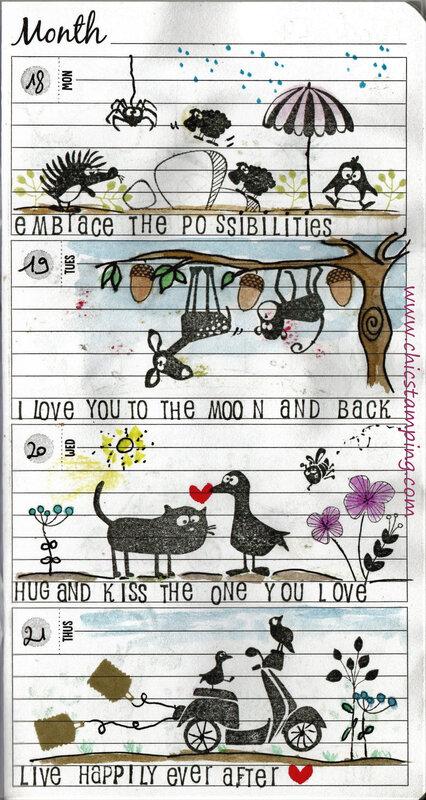 Month
18 MON
EMBRACE THE POSSIBILITIES
19 TUES
I LOVE YOU TO THE MOON AND BACK
www.chicstamping.com
20 WED
HUG AND KISS THE ONE YOU LOVE
21 THUS
LIVE HAPPILY EVER AFTER